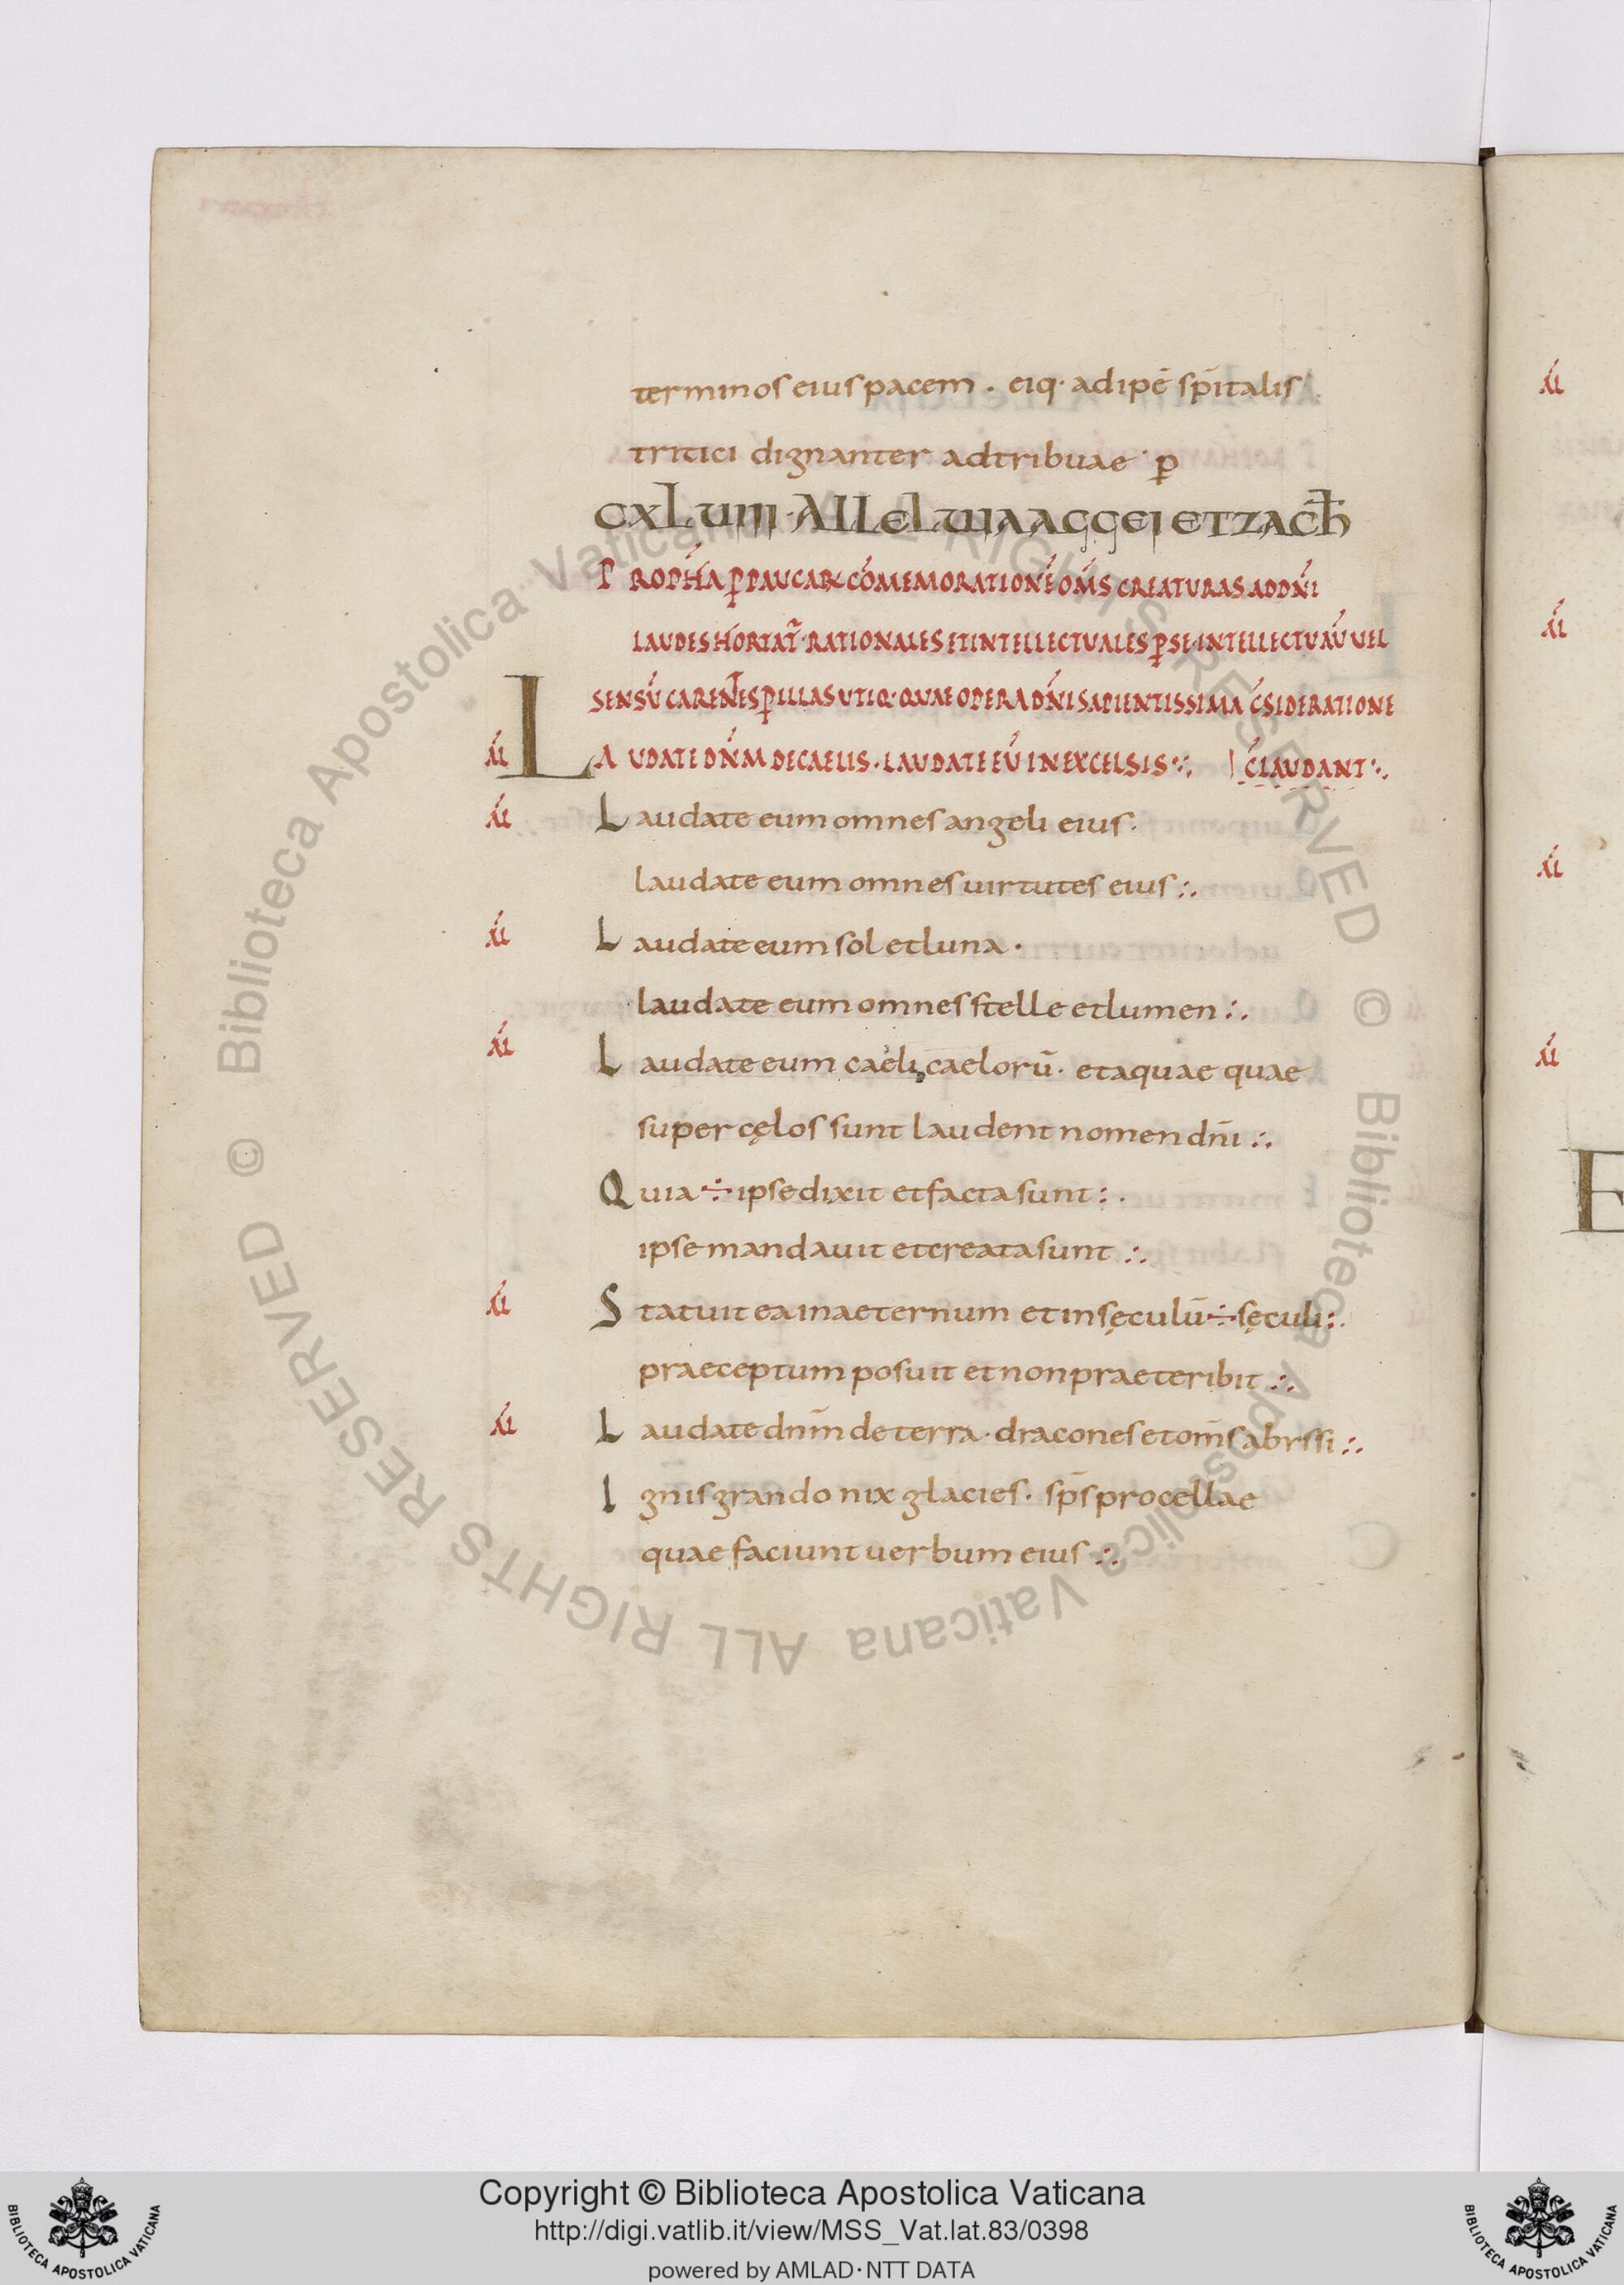 terminos eius pacem . eiq· adipē sp̄italis
tritici dignanter adtribuae · ꝑ
CXLUIII · ALLELUIA AGGEI ET ZACH̄
PROPH̄A ꝑ PAUCAR̄ CŌMEMORATIONĒ OM̄S CREATURAS AD DN̄I
LAUDES HORTAT̄· RATIONALES ET INTELLECTUALES ꝑ SE· INTELLECTU AŪ UEL
SENSŪ CAREN̄ES ꝑ ILLAS UTIQ· QUAE OPERA DN̄I SAPIENTISSIMA C̄SIDERATIONE
al̄ LAUDATE DN̄M DE CAELIS · LAUDATE EŪ IN EXCELSIS ჻ | C̄LAUDANT ჻
al̄ Laudate eum omnes angeli eius ·
laudate eum omnes uirtutes eius ჻
al̄ Laudate eum sol et luna ·
laudate eum omnes stelle et lumen ჻
al̄ Laudate eum caeli caelorū · et aquae quae
super cęlos sunt laudent nomen dn̄i ჻
Quia ÷ ipse dixit et facta sunt : ·
ipse mandauit et creata sunt ჻
al̄ Statuit ea in aeternum et in sęculū ÷ sęculi : ·
praeceptum posuit et non praeteribit ჻
al̄ Laudate dn̄m de terra · dracones et om̄s abyssi ჻
Ignis grando nix glacies · sp̄s procellae
quae faciunt uerbum eius ჻
al̄
al̄
al̄
al̄
E
© Biblioteca Apostolica Vaticana ALL RIGHTS RESERVED © Biblioteca Apostolica Vaticana ALL RIGHTS RESERVED
Copyright © Biblioteca Apostolica Vaticana
http://digi.vatlib.it/view/MSS_Vat.lat.83/0398
powered by AMLAD·NTT DATA
BIBLIOTECA APOSTOLICA VATICANA
BIBLIOTECA APOSTOLICA VATICANA